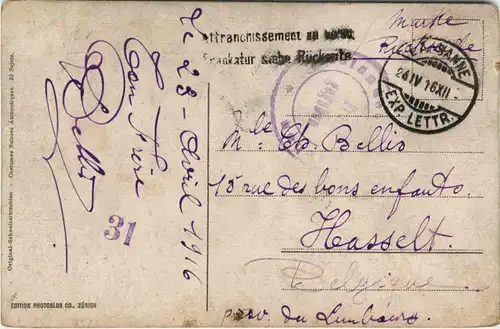 Affranchissement au verso.
Frankatur siehe Rückseite.
Marke
Rückseite
LAUSANNE
24 IV 16 XII
EXP. LETTR.
le 23 Avril 1916
Ton Frère
31
Mlle Ch. Bellis
15 rue des bons enfants.
Hasselt
Belgique
prov. du Limbourg.
Original-Schweizertrachten - Costumes Suisses Authentiques. 22 Sujets.
EDITION PHOTOGLOB CO., ZÜRICH